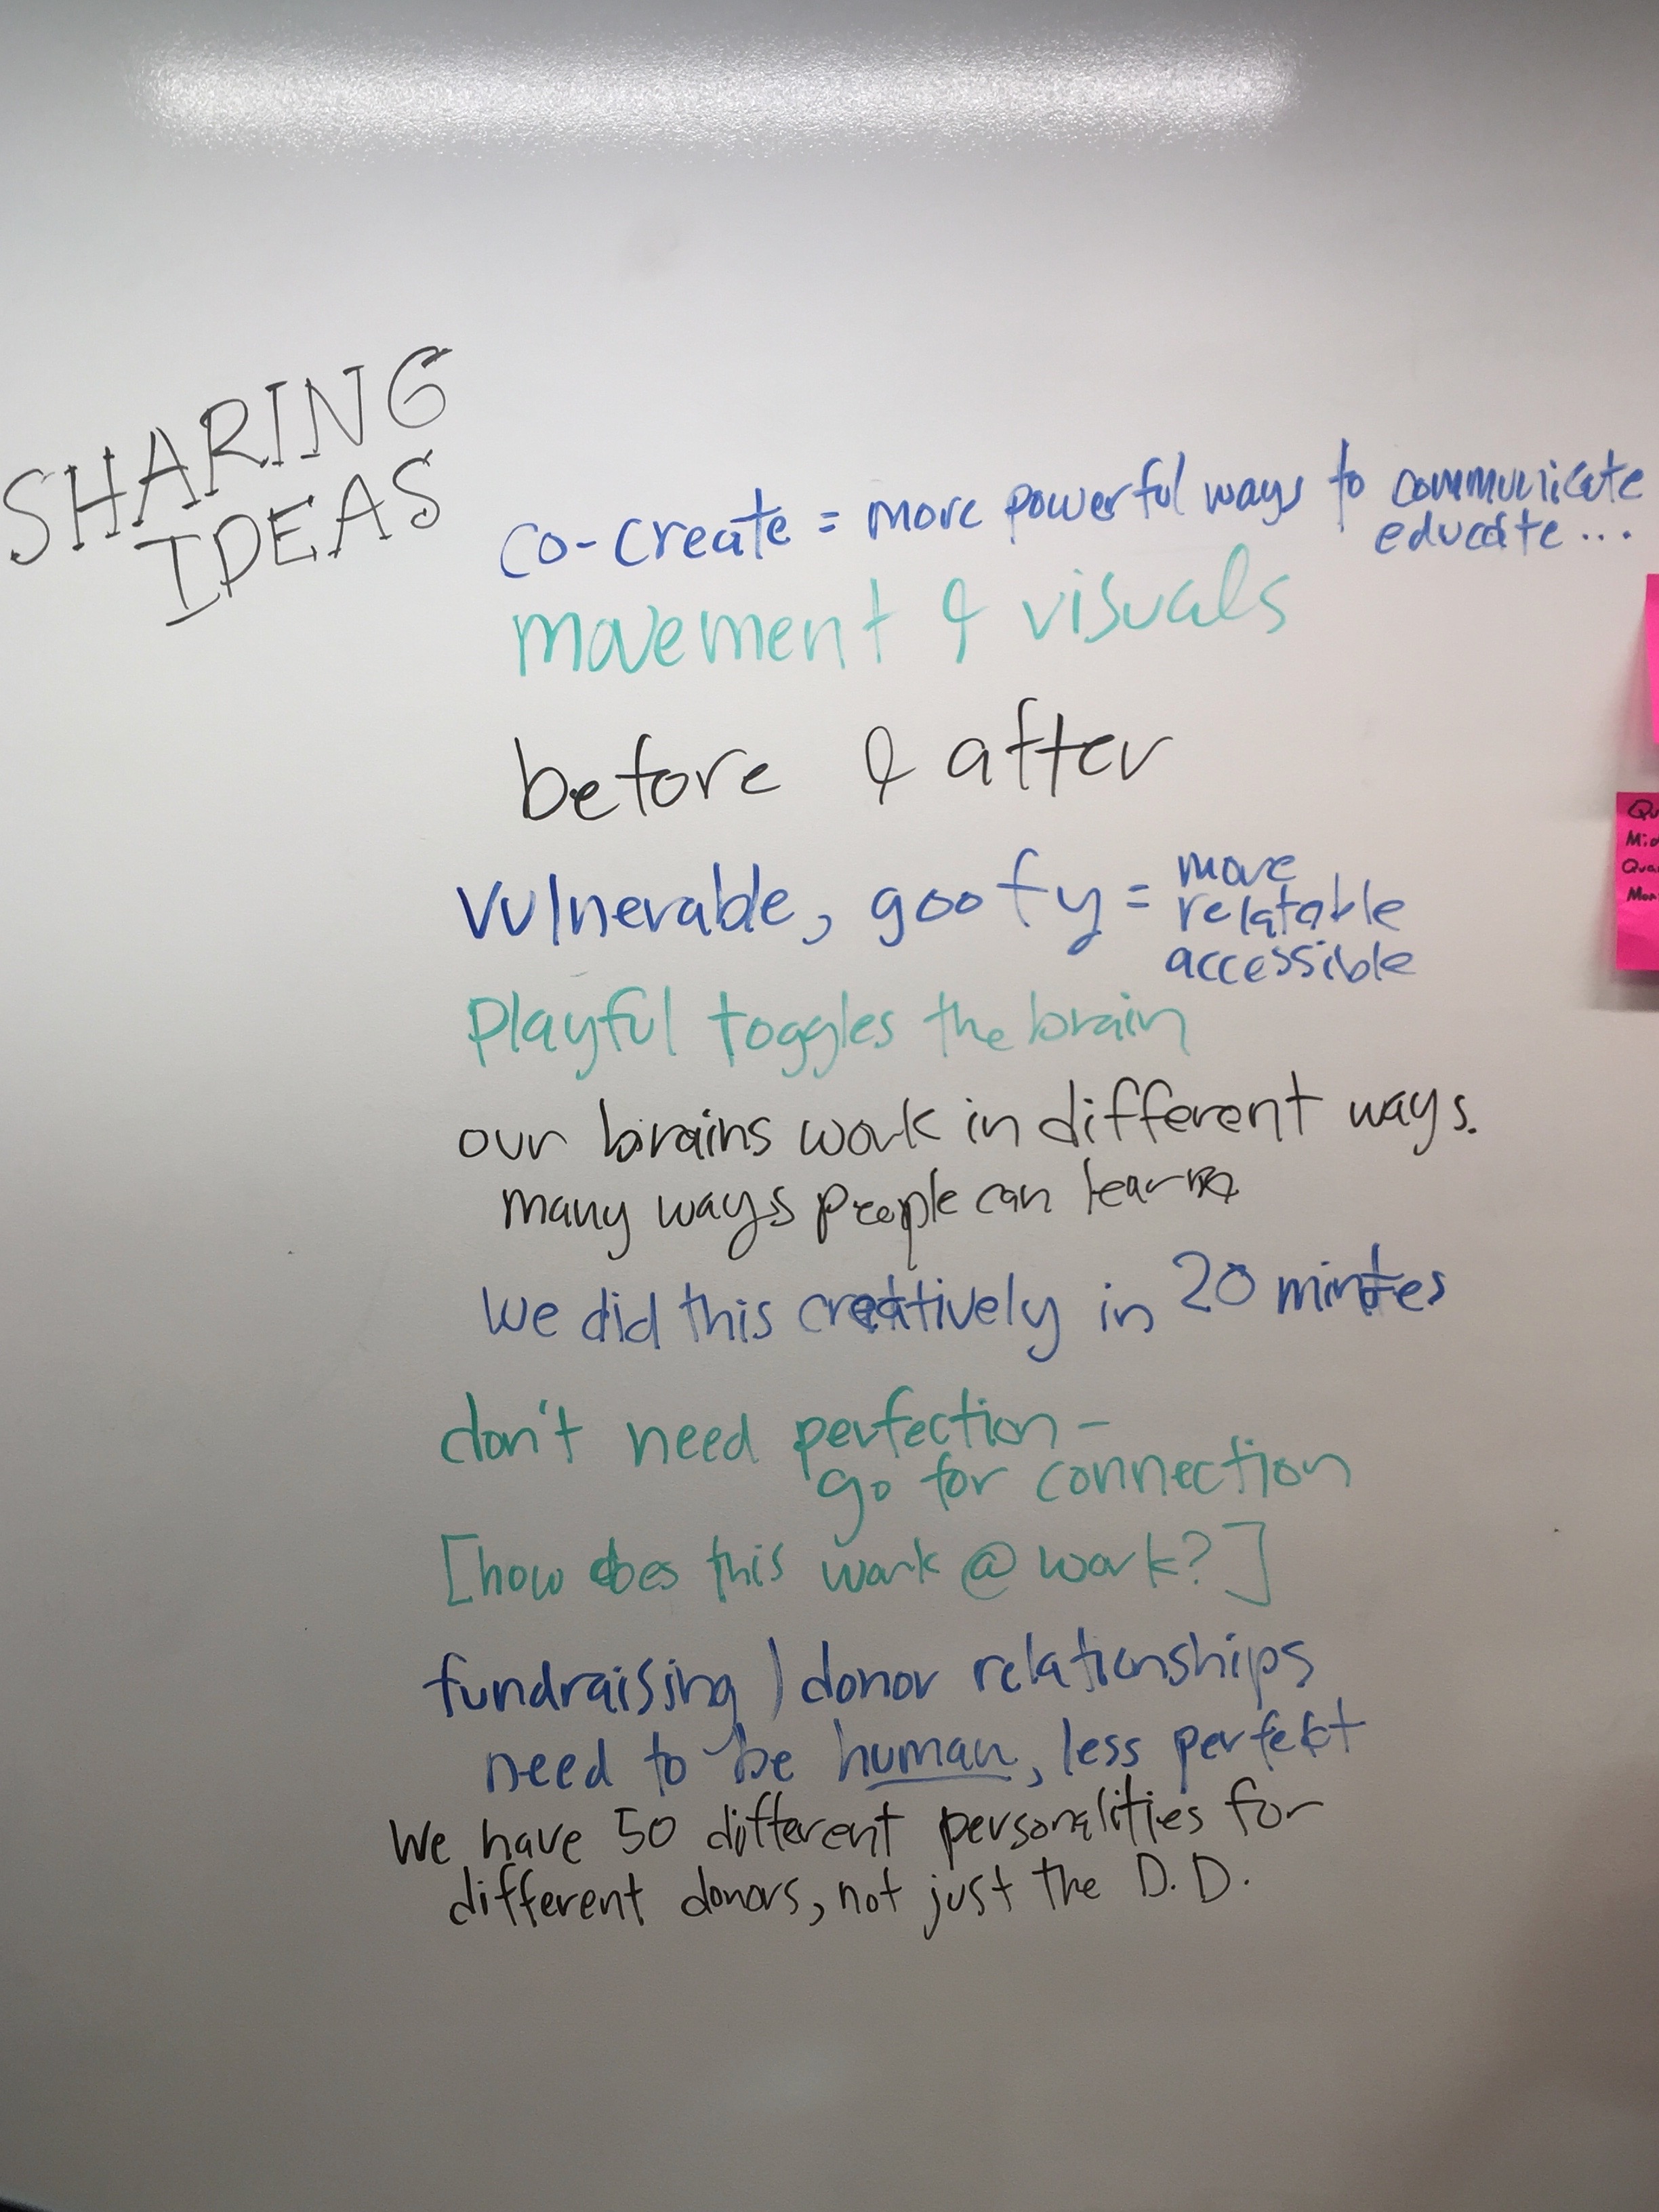 SHARING
IDEAS
co-create = more powerful ways to communicate
educate...
movement & visuals
before & after
Vulnerable, goofy = more
relatable
accessible
Playful toggles the brain
our brains work in different ways.
many ways people can learn
We did this creatively in 20 mintes
don't need perfection -
go for connection
[how does this work @ work?]
fundraising / donor relationships
need to be human, less perfekt
We have 50 different personalities for
different donors, not just the D.D.